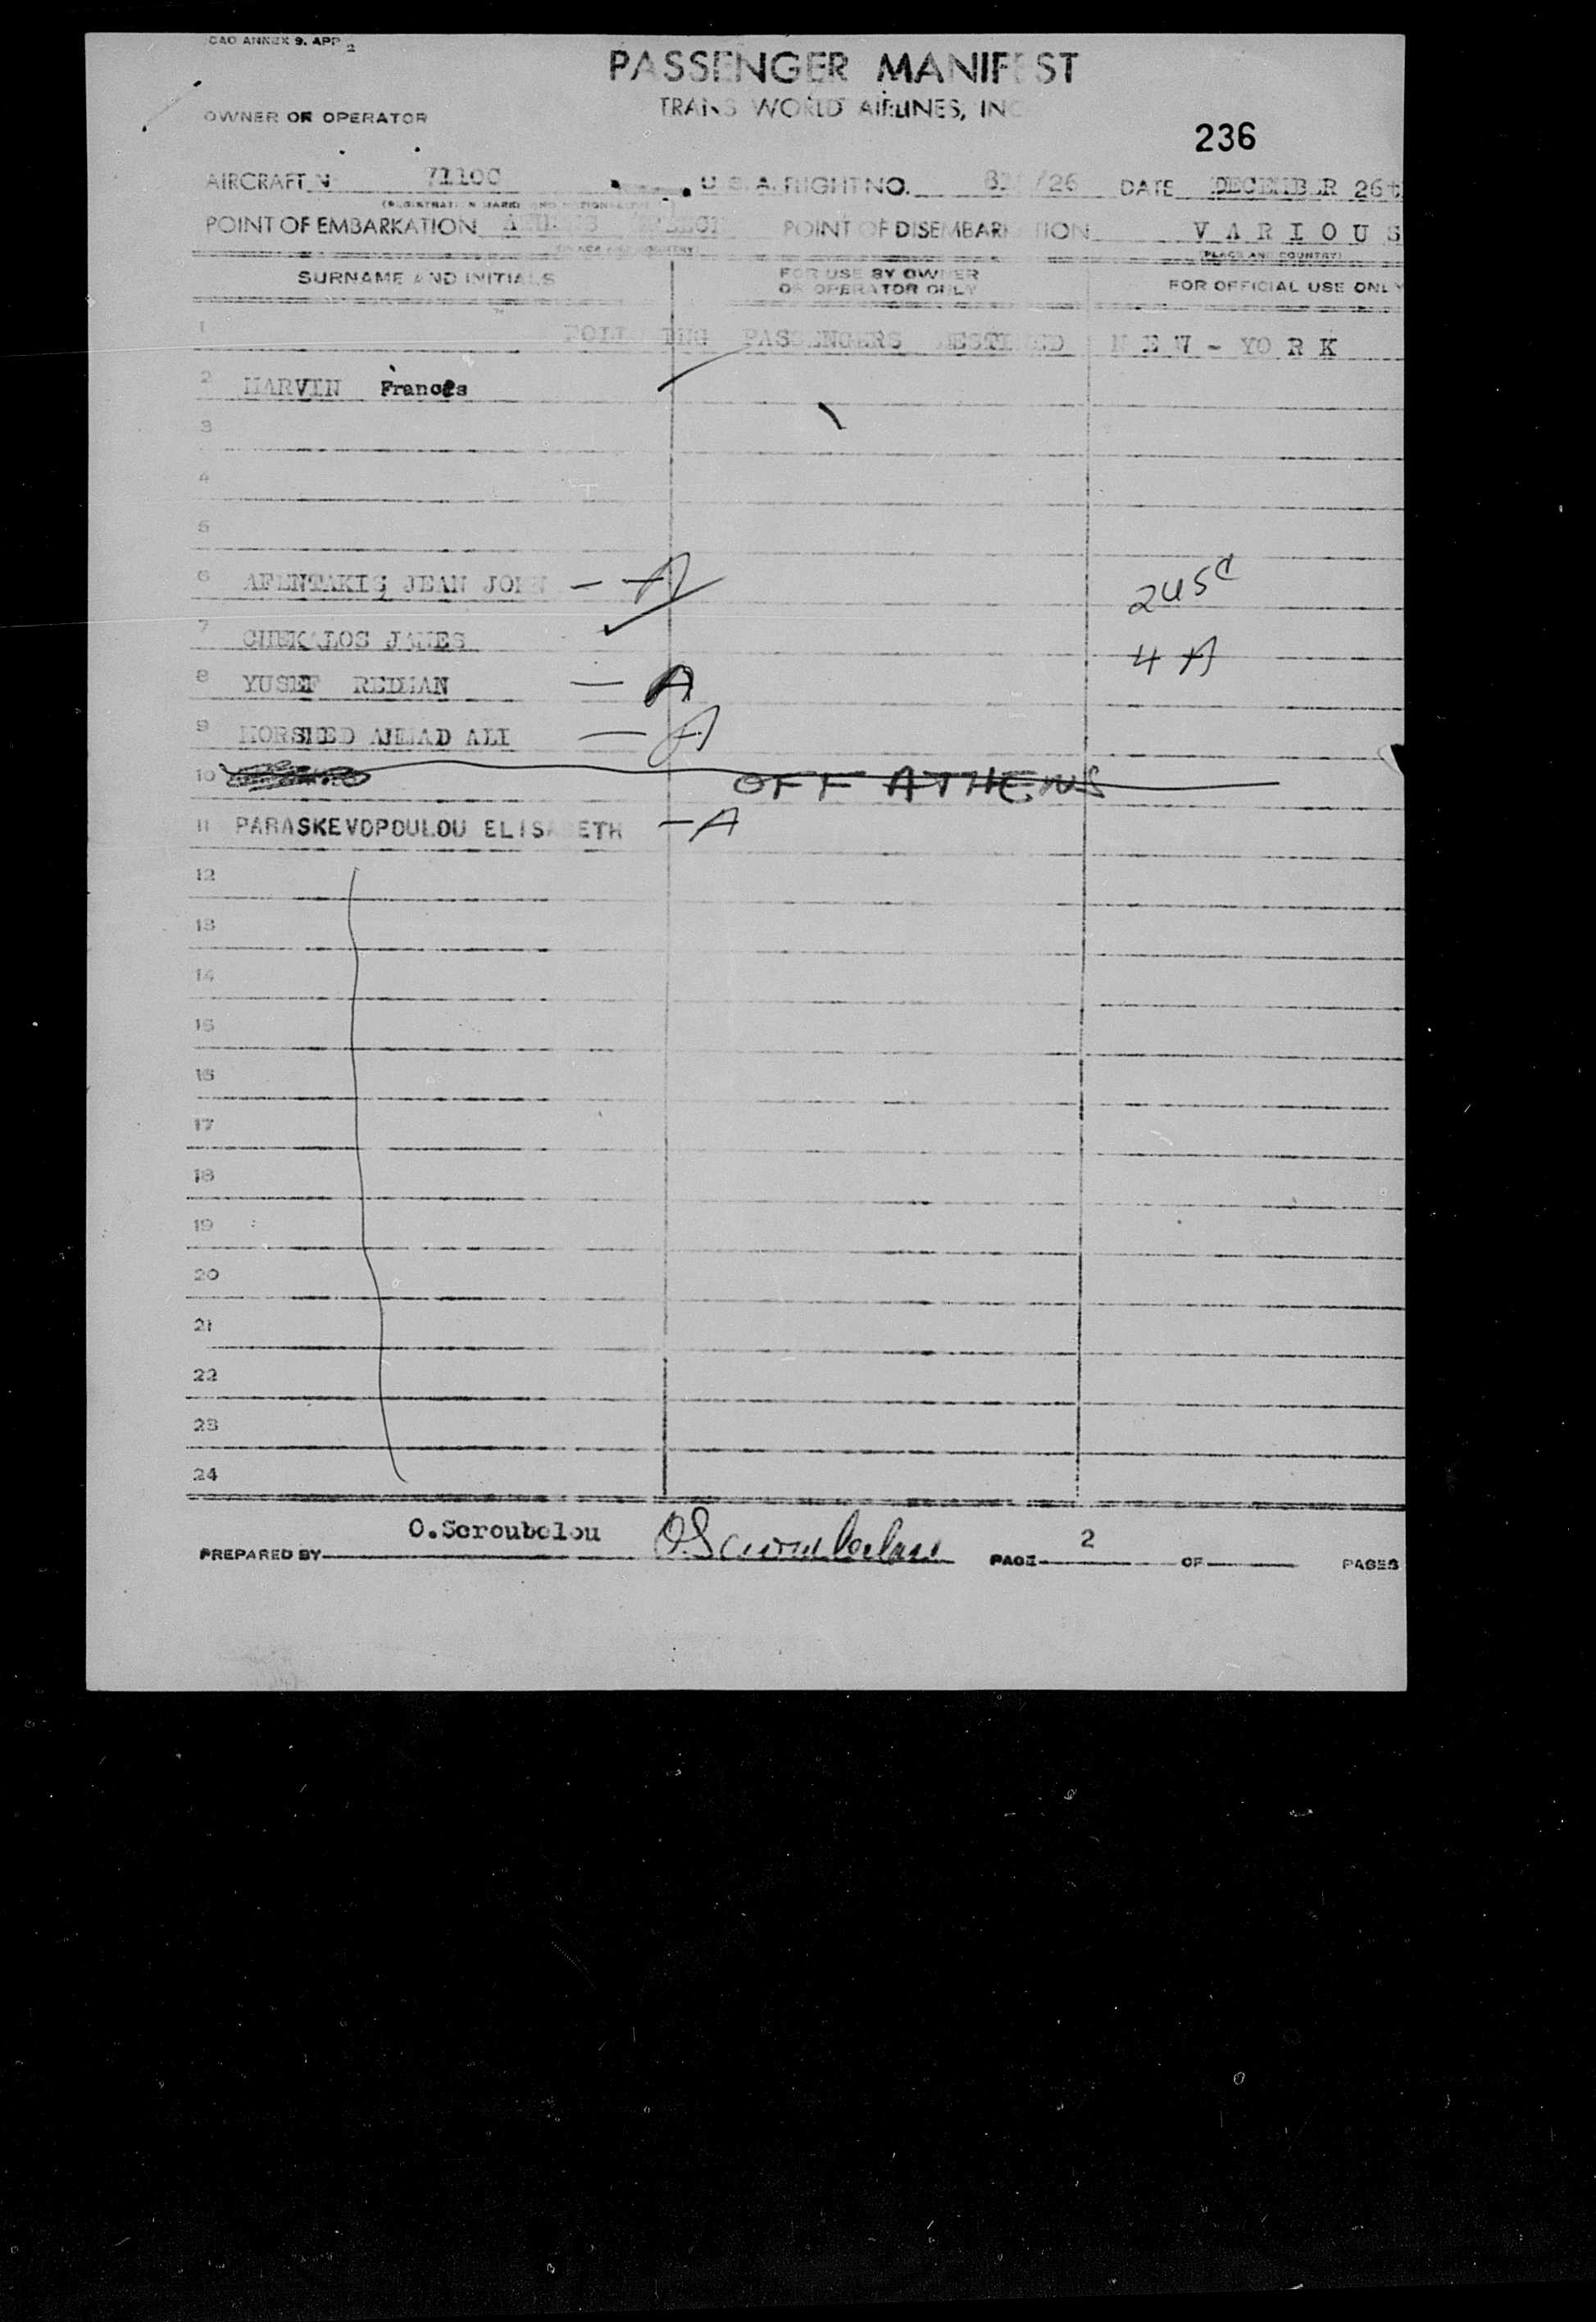 ICAO ANNEX 9. APP 2
PASSENGER MANIFEST
TRANS WORLD AIRLINES, INC
OWNER OR OPERATOR
236
AIRCRAFT N 7110C U.S.A. FLIGHT NO. /26 DATE DECEMBER 26t
(REGISTRATION MARKS AND NATIONALITY)
POINT OF EMBARKATION ATHENS GREECE POINT OF DISEMBARKATION VARIOUS
(PLACE AND COUNTRY) (PLACE AND COUNTRY)
SURNAME AND INITIALS FOR USE BY OWNER OR OPERATOR ONLY FOR OFFICIAL USE ONLY
1 FOLLOWING PASSENGERS DESTINED NEW-YORK
2 MARVIN Frances
3
4
5
6 AFENTAKIS JEAN JOHN - A 2USC
7 CHEKALOS JAMES 4 A
8 YUSEF REDMAN - A
9 MORSHED AHMAD ALI - A
10 OFF ATHENS
11 PARASKEVOPOULOU ELISABETH - A
12
13
14
15
16
17
18
19
20
21
22
23
24
PREPARED BY O.Scroubelou O.Scroubelou PAGE 2 OF PAGES